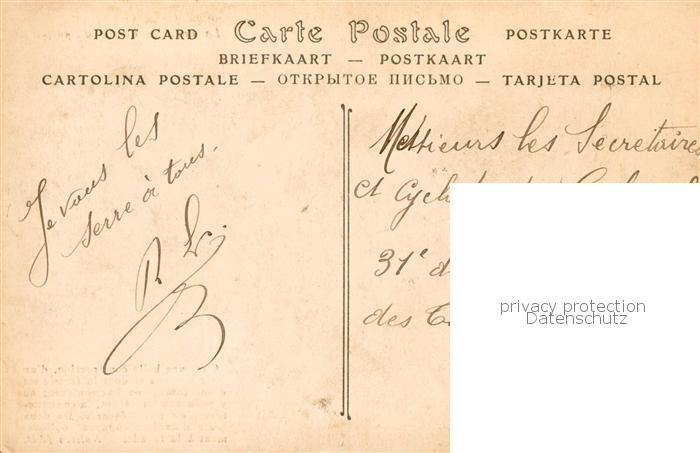 POST CARD Carte Postale POSTKARTE
BRIEFKAART — POSTKAART
CARTOLINA POSTALE — ОТКРЫТОЕ ПИСЬМО — TARJETA POSTAL
Je vous les
serre à tous.
R L.
B
Messieurs les Secretaires
et
31e d
des
privacy protection
Datenschutz